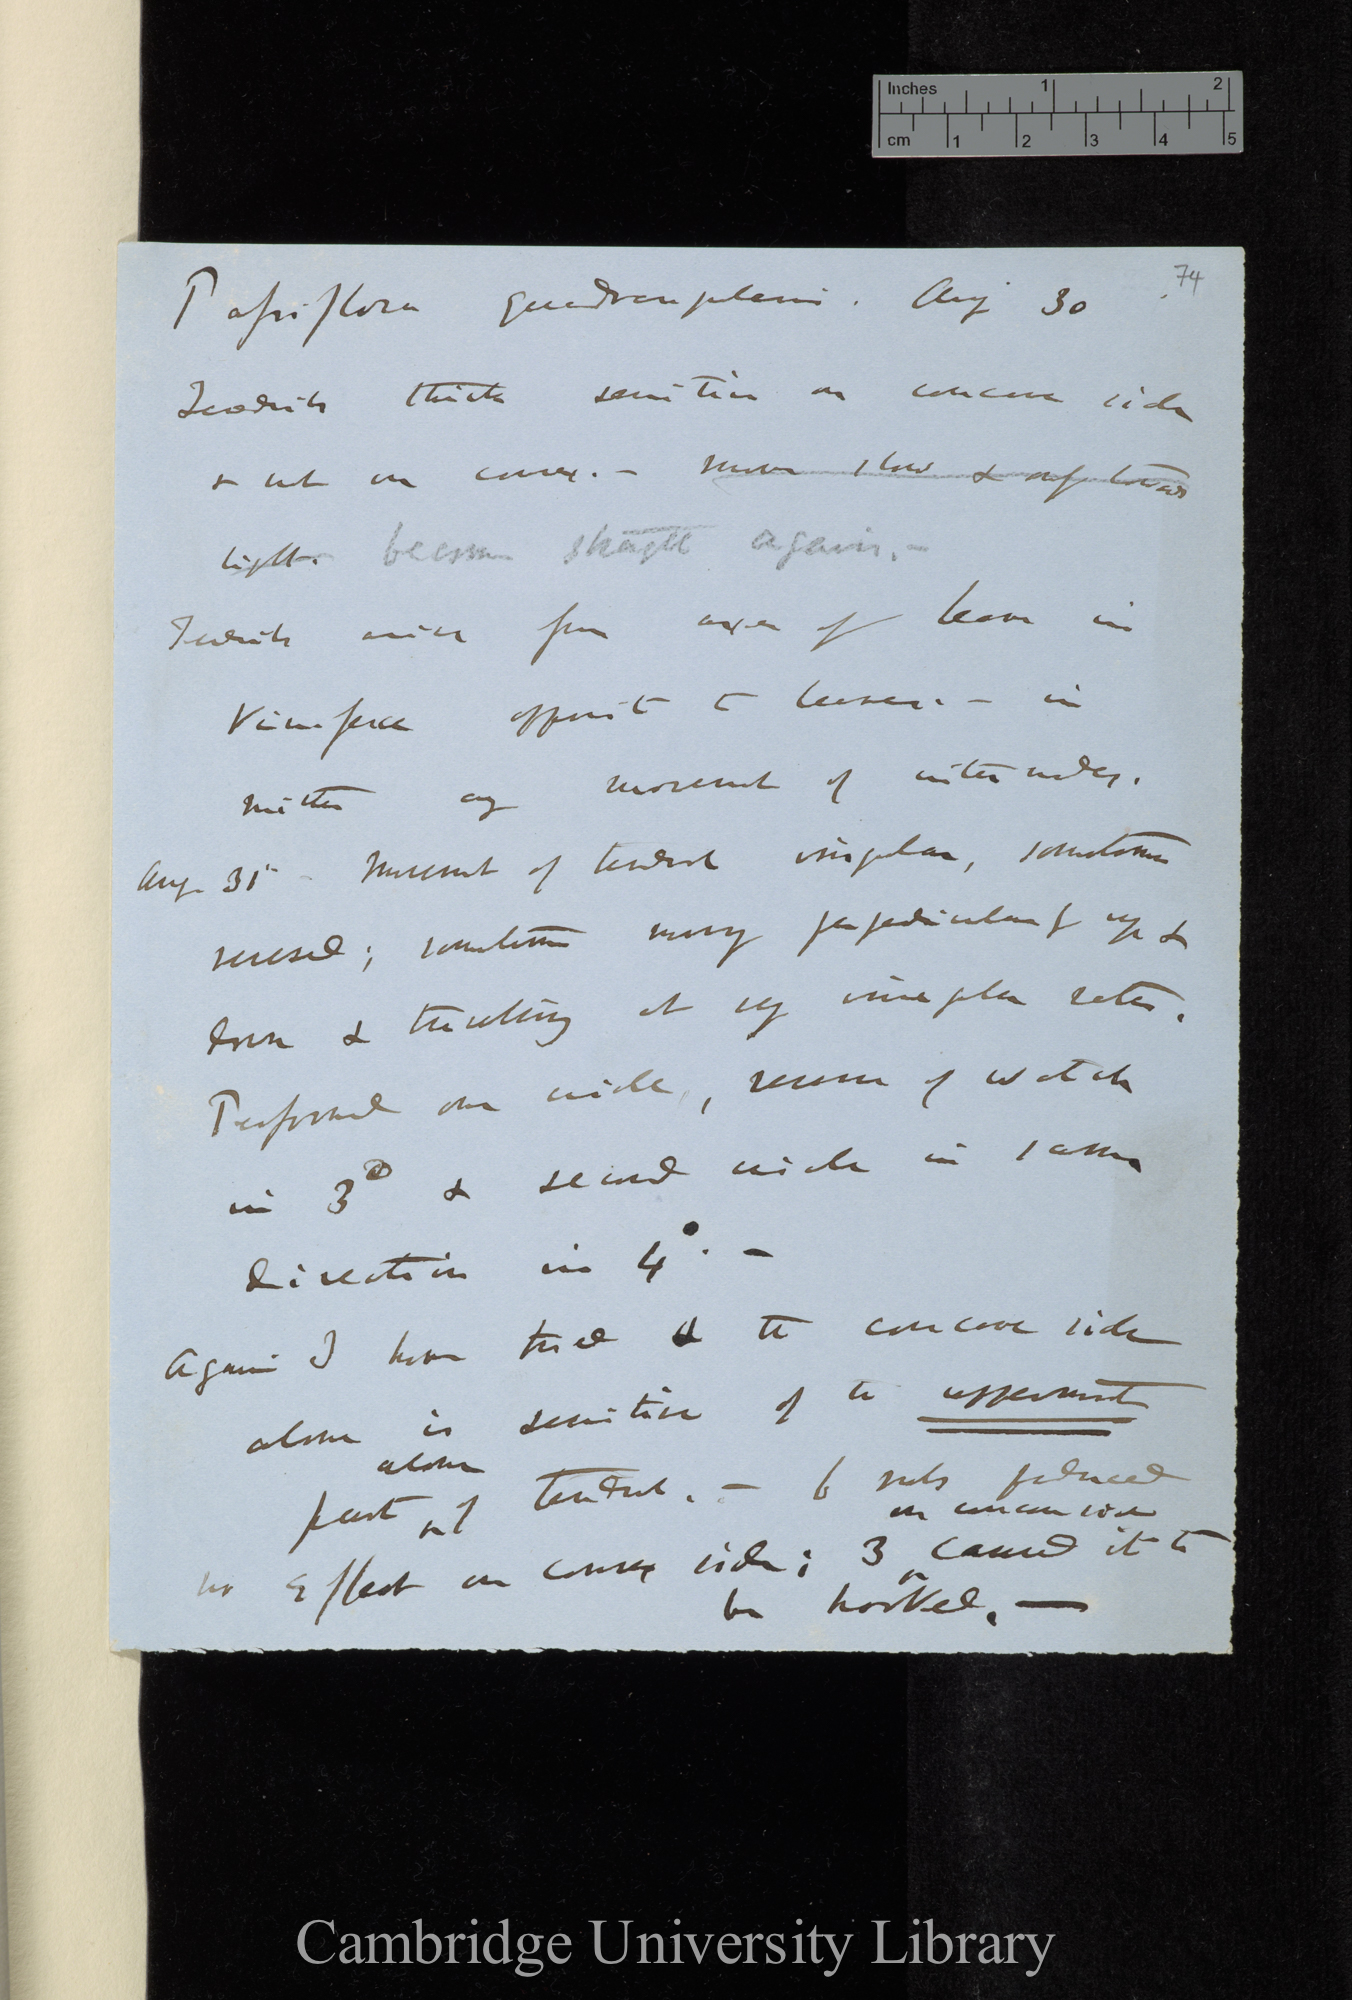 Inches 1 2
cm 1 2 3 4 5
74
Passiflora quadrangularis. Aug 30
Tendrils thick sensitive on concave side
& not on convex. — move slow & only towards
light. become straight again. —
Tendrils arise from axes of leaves in
Viniferæ opposite to leaves. — in
neither any movement of internodes.
Aug. 31 — Movement of tendril irregular, sometimes
reversed; sometimes moving perpendicularly up &
down & travelling at very irregular rates.
Performed one circle, reverse of watch
in 3° & second circle in same
direction in 4°. —
Again I have tried & the concave side
alone is sensitive of the uppermost
alone
part of tendril. — 6 rubs produced
on concave side
no effect on convex side; 3 caused it to
be hooked. —
Cambridge University Library